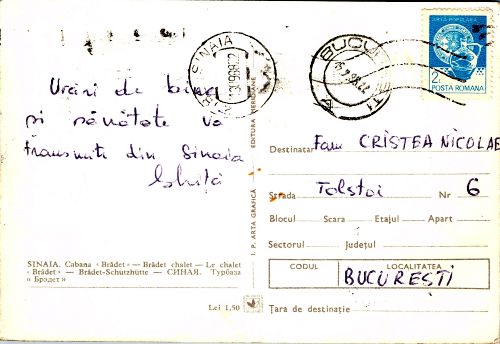 Urări de bine
și sănătate vă
transmite din Sinaia
Ghiță
SINAIA. Cabana «Brădet» — Brădet chalet — Le chalet
«Brădet» — Brădet-Schutzhütte — СИНАЯ. Турбаза
«Брэдет»
Lei 1,50
I. P. ARTA GRAFICĂ
EDITURA MERIDIANE
SINAIA
BUCUREȘTI
ARTA POPULARA
2
POSTA ROMANA
Destinatar Fam CRISTEA NICOLAE
Strada Tolstoi Nr 6
Blocul Scara Etajul Apart
Sectorul Județul
CODUL LOCALITATEA
BUCUREȘTI
Țara de destinație